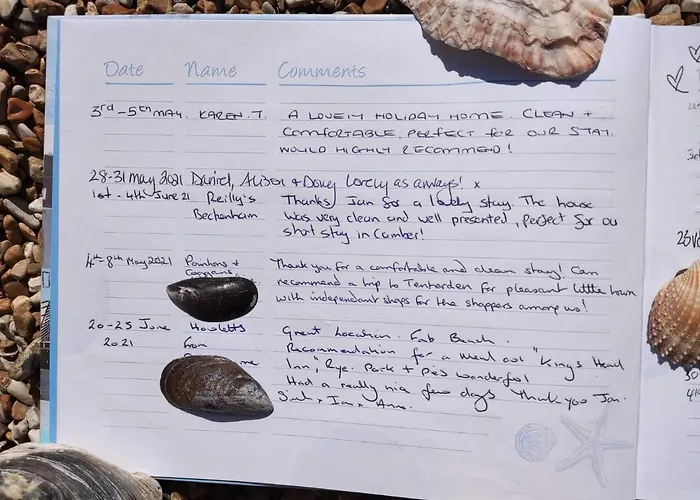 Date Name Comments
3rd-5th MAY. KAREN. T. A LOVELY HOLIDAY HOME. CLEAN +
COMFORTABLE. PERFECT FOR OUR STAY.
WOULD HIGHLY RECOMMEND!
28-31 May 2021 Daniel, Alison + Dovey Lovely as always! x
1st - 4th June 21 Reilly's Thanks Jan for a lovely stay. The house
Beckenham was very clean and well presented, perfect for our
short stay in Camber!
4th-8th May 2021 Thank you for a comfortable and clean stay! Can
recommend a trip to Tenterden for pleasant little town
with independant shops for the shoppers among us!
20-25 June Howletts Great Location. Fab Beach.
2021 from Recommendation for a meal out "Kings Head
Inn", Rye. Pork + Pies wonderful
Had a really nice few days Thank you Jan.